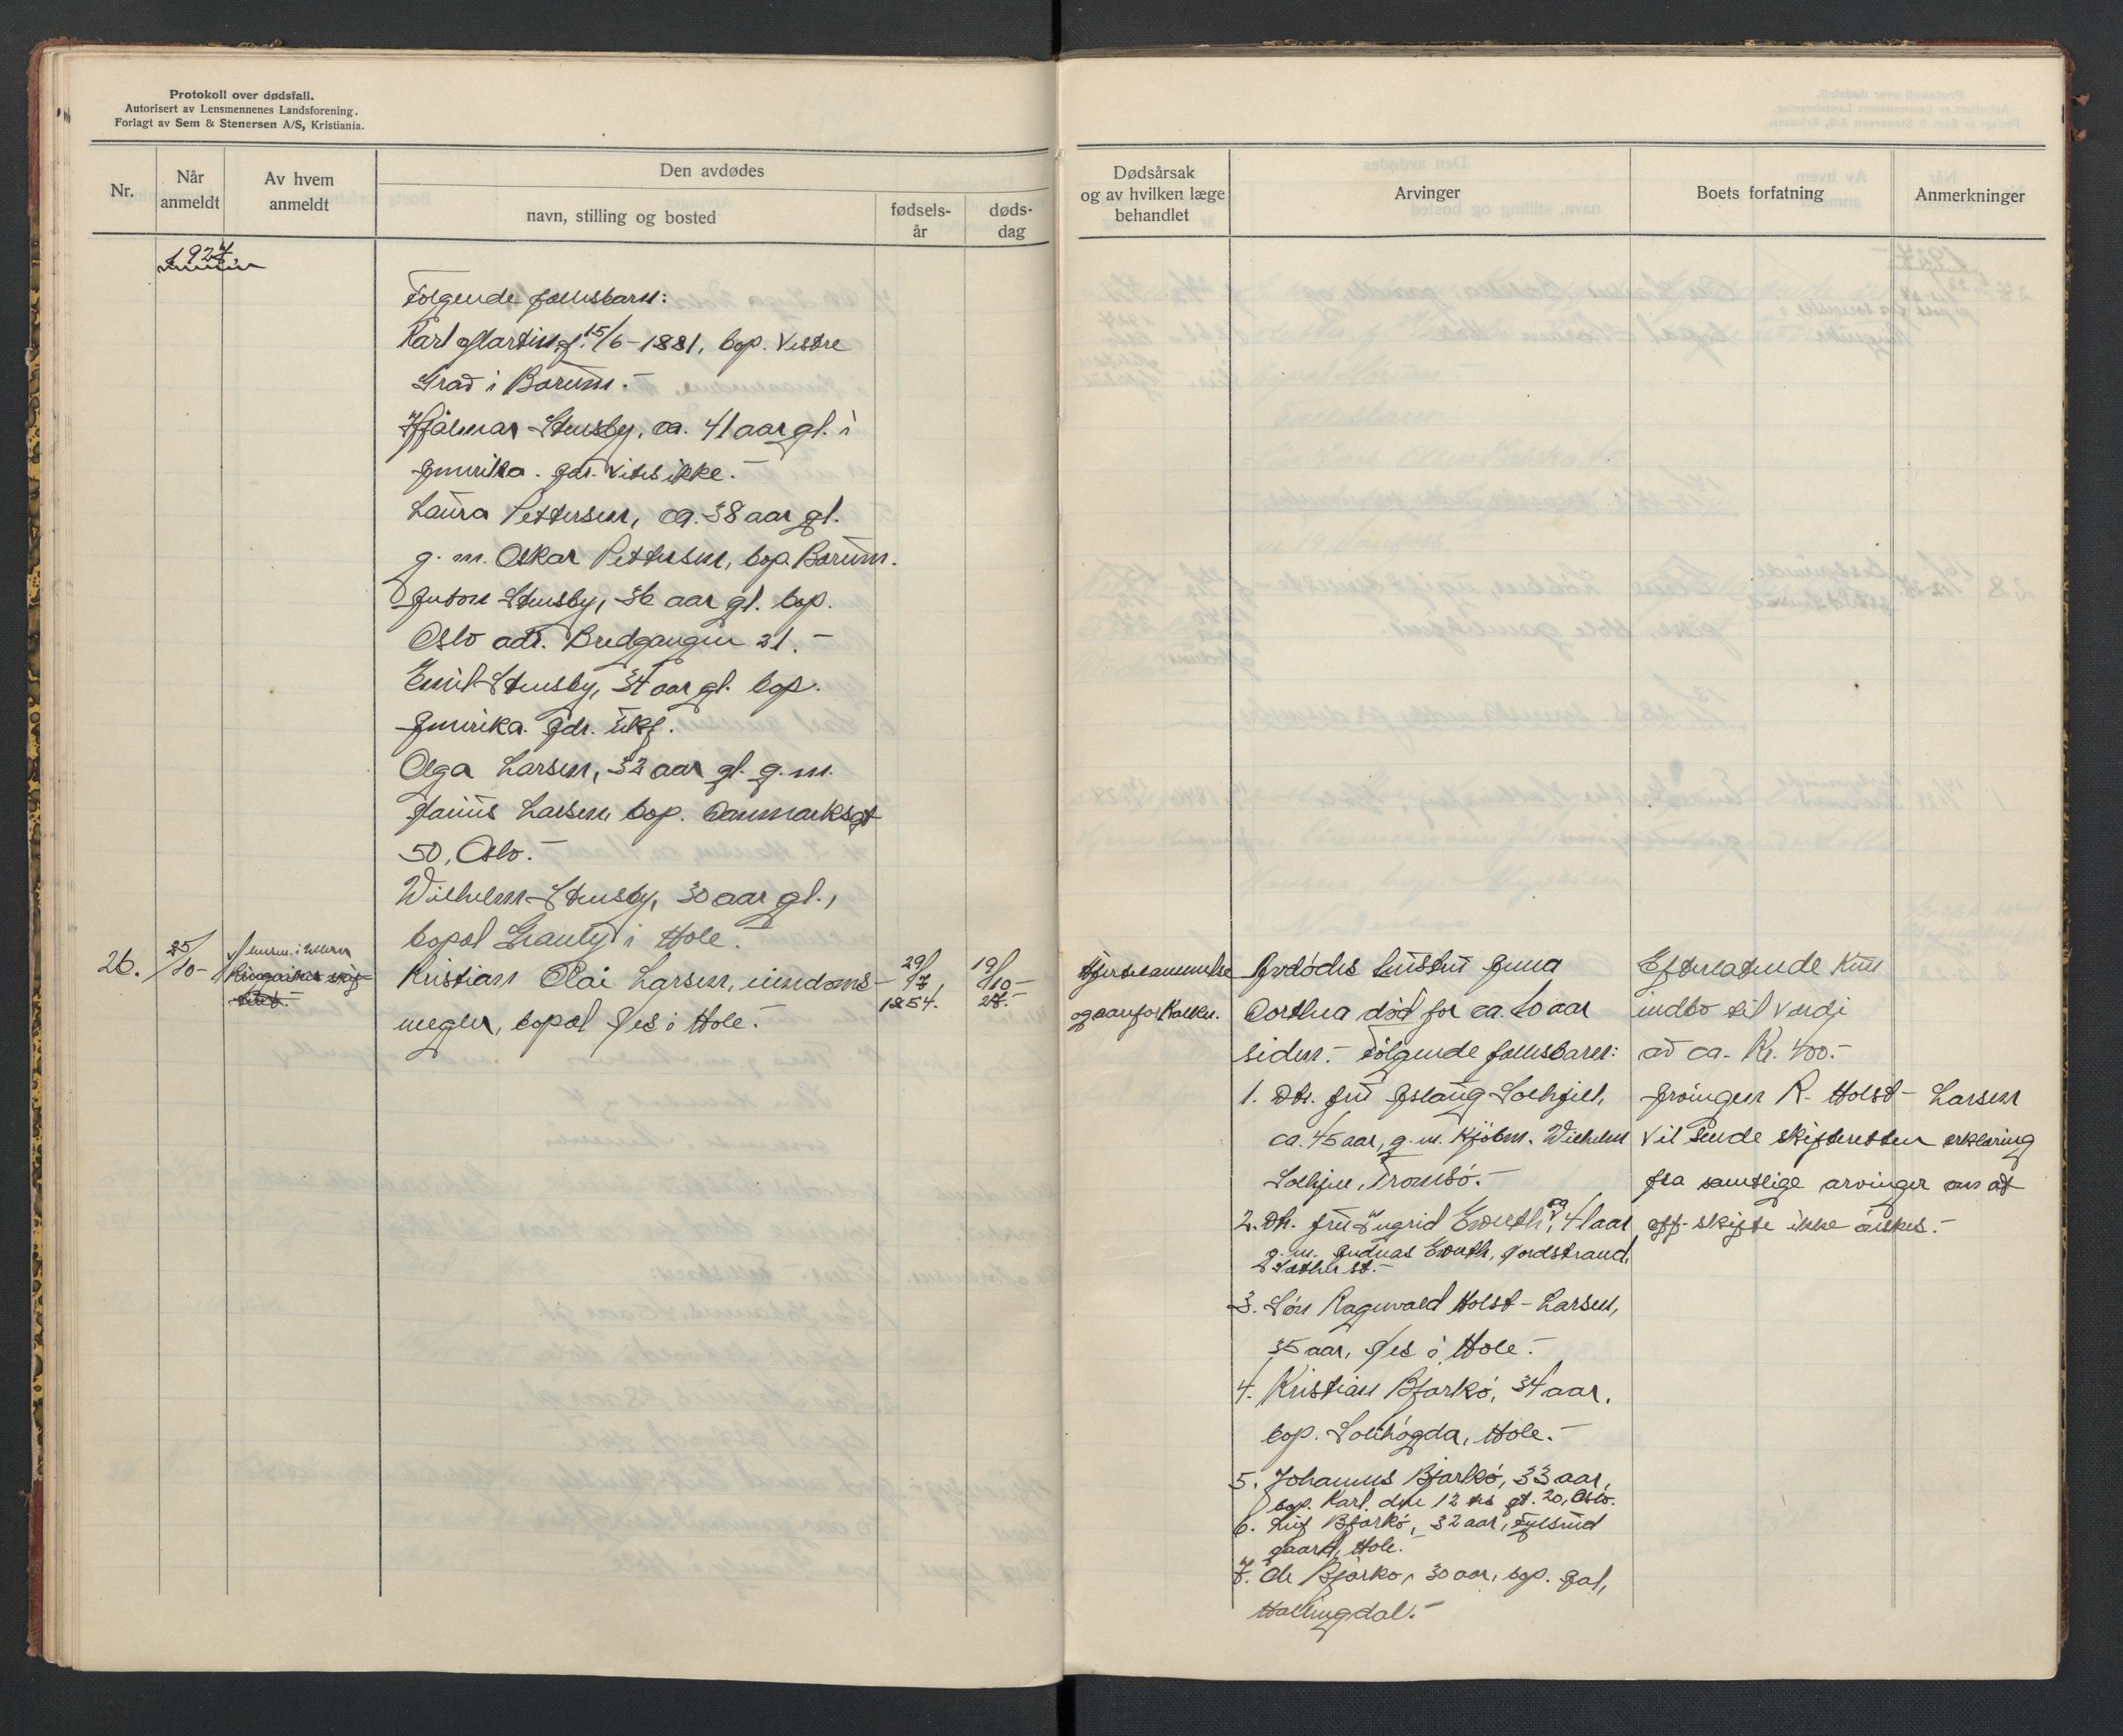 Protokoll over dødsfall.
Autorisert av Lensmennenes Landsforening.
Forlagt av Sem & Stenersen A/S, Kristiania.
Nr.
Når anmeldt
Av hvem anmeldt
Den avdødes
navn, stilling og bosted
fødsels-år
døds-dag
1927.
Følgende fællesbarn:
Karl Martin, f. 15/6-1881, bop. Vestre
Grav i Bærum.-
Hjalmar Stensby, ca. 41 aar gl. i
Amerika. Adr. vites ikke.-
Laura Pettersen, ca. 38 aar gl.
g. m. Oskar Pettersen, bop. Bærum.
Anton Stensby, 36 aar gl. bop.
Oslo adr. Bredgangen 21.-
Emil Stensby, 34 aar gl. bop.
Amerika. Adr. ukj.
Olga Larsen, 32 aar gl. g. m.
Larsen, bop. Danmarksgt
50, Oslo.-
Wilhelm Stensby, 30 aar gl.,
bopæl i Hole.-
26.
25/10-
Lensm. i
Ringerikes skif-
teret.-
Kristian Olai Larsen, eiendoms-
megler, bopæl Nes i Hole.-
29/7, 1854.
19/10-27.-
Dødsårsak
og av hvilken læge
behandlet
Arvinger
Boets forfatning
Anmerkninger
Hjertelammelse
og aareforkalkn.
Avdødes hustru Anna
Dorthea død for ca. 10 aar
siden.- Følgende fællesbarn:
1. Dtr. fru Aslaug Solhjell,
ca. 45 aar, g. m. Kjøbm. Wilhelm
Solhjell, Tromsø.-
2. Dtr. fru Ingrid Ewerth, ca 41 aar
g. m. Andreas Ewerth, Nordstrand,
Sæther st.-
3. Søn Ragnvald Holst-Larsen,
35 aar, Nes i Hole.-
4. Kristian Bjarkø, 34 aar,
bop. Sollihøgda, Hole.-
5. Johannes Bjarkø, 33 aar,
bop. Karl den 12 tes gt. 20, Oslo.
6. Leif Bjarkø, 32 aar,
gaard, Hole.-
7. Ole Bjarkø, 30 aar, bop. Aal,
Hallingdal.-
Efterlatende kun
indbo til verdi
av ca. Kr. 400.-
Arvingen R. Holst-Larsen
vil sende skifteretten erklæring
fra samtlige arvinger om at
off. skifte ikke ønskes.-